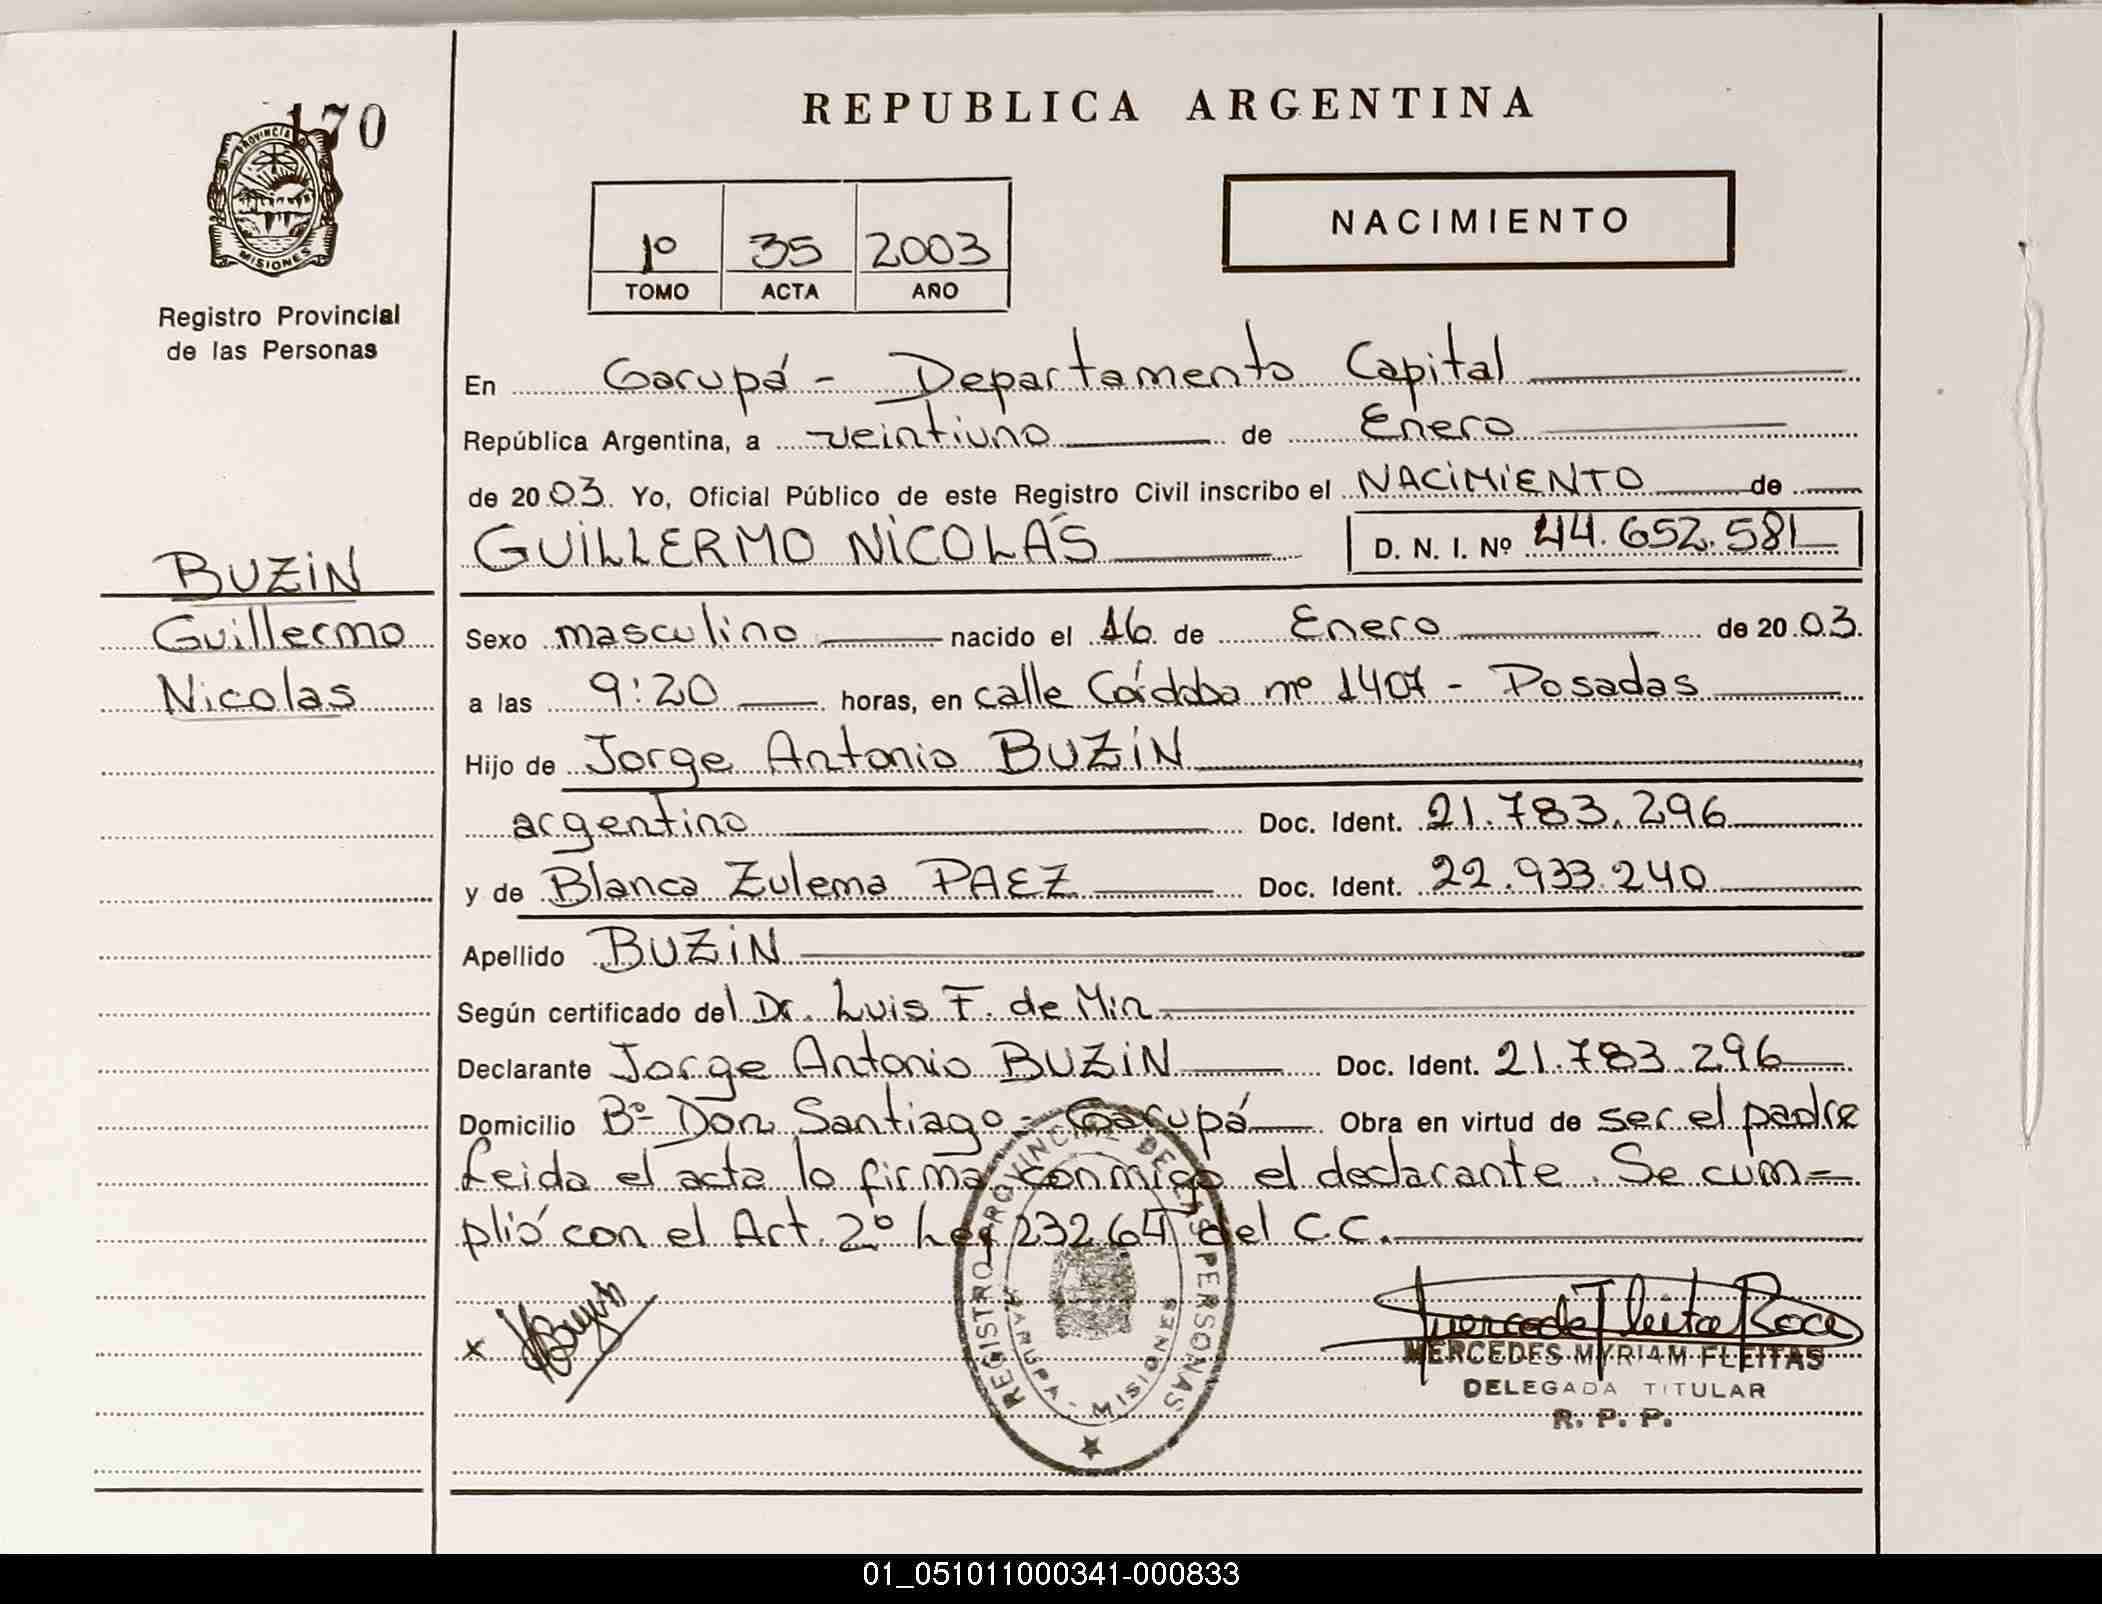 170
PROVINCIA DE
MISIONES
Registro Provincial
de las Personas
BUZIN
Guillermo
Nicolas
REPUBLICA ARGENTINA
1º 35 2003
TOMO ACTA AÑO
NACIMIENTO
En Garupá - Departamento Capital
República Argentina, a veintiuno de Enero
de 2003. Yo, Oficial Público de este Registro Civil inscribo el NACIMIENTO de
GUILLERMO NICOLÁS D. N. I. Nº 44.652.581
Sexo masculino nacido el 16 de Enero de 2003.
a las 9:20 horas, en calle Córdoba nº 1407 - Posadas
Hijo de Jorge Antonio BUZIN
argentino Doc. Ident. 21.783.296
y de Blanca Zulema PAEZ Doc. Ident. 22.933.240
Apellido BUZIN
Según certificado del Dr. Luis F. de Min
Declarante Jorge Antonio BUZIN Doc. Ident. 21.783.296
Domicilio Bº Don Santiago - Garupá Obra en virtud de ser el padre
Leida el acta lo firma conmigo el declarante. Se cum=
plió con el Art. 2º Ley 23264 del C.C.
REGISTRO PROVINCIAL DE LAS PERSONAS
GARUPA - MISIONES
x
MERCEDES MYRIAM FLEITAS
DELEGADA TITULAR
R. P. P.
01_051011000341-000833